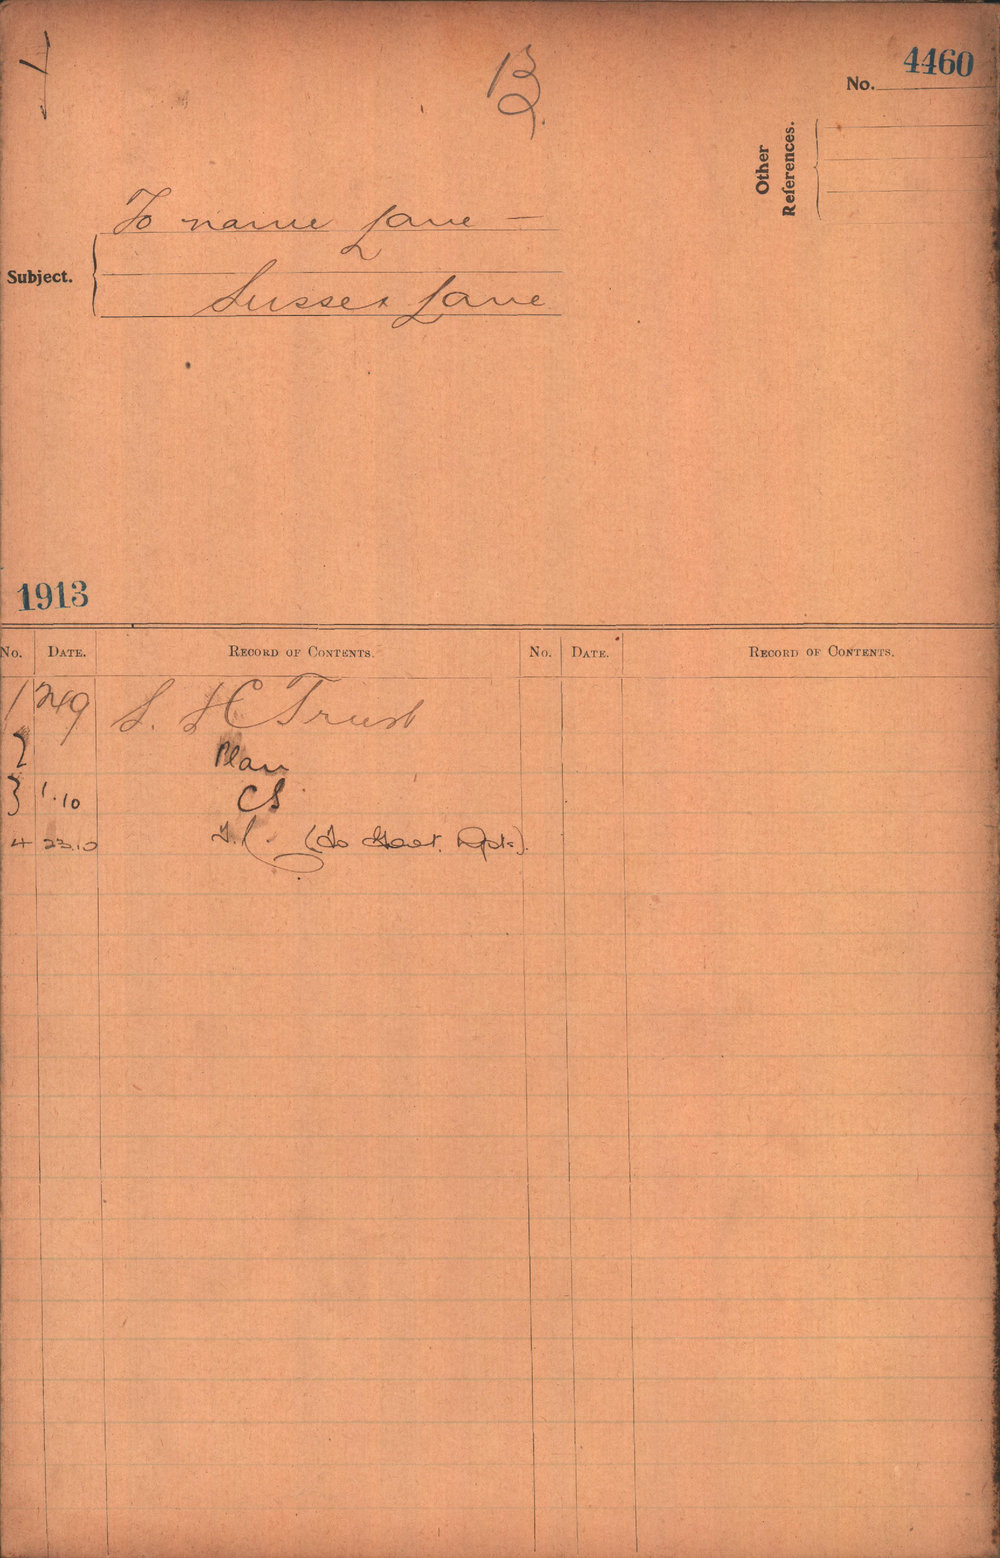 4460
No.
Other References.
To name Lane —
Subject.
Sussex Lane
1913
No. Date. Record of Contents. No. Date. Record of Contents.
1 24/9 S. H C Trust
2 Plan
3 1.10 CS
4 23.10 (to Govt. Dpts).